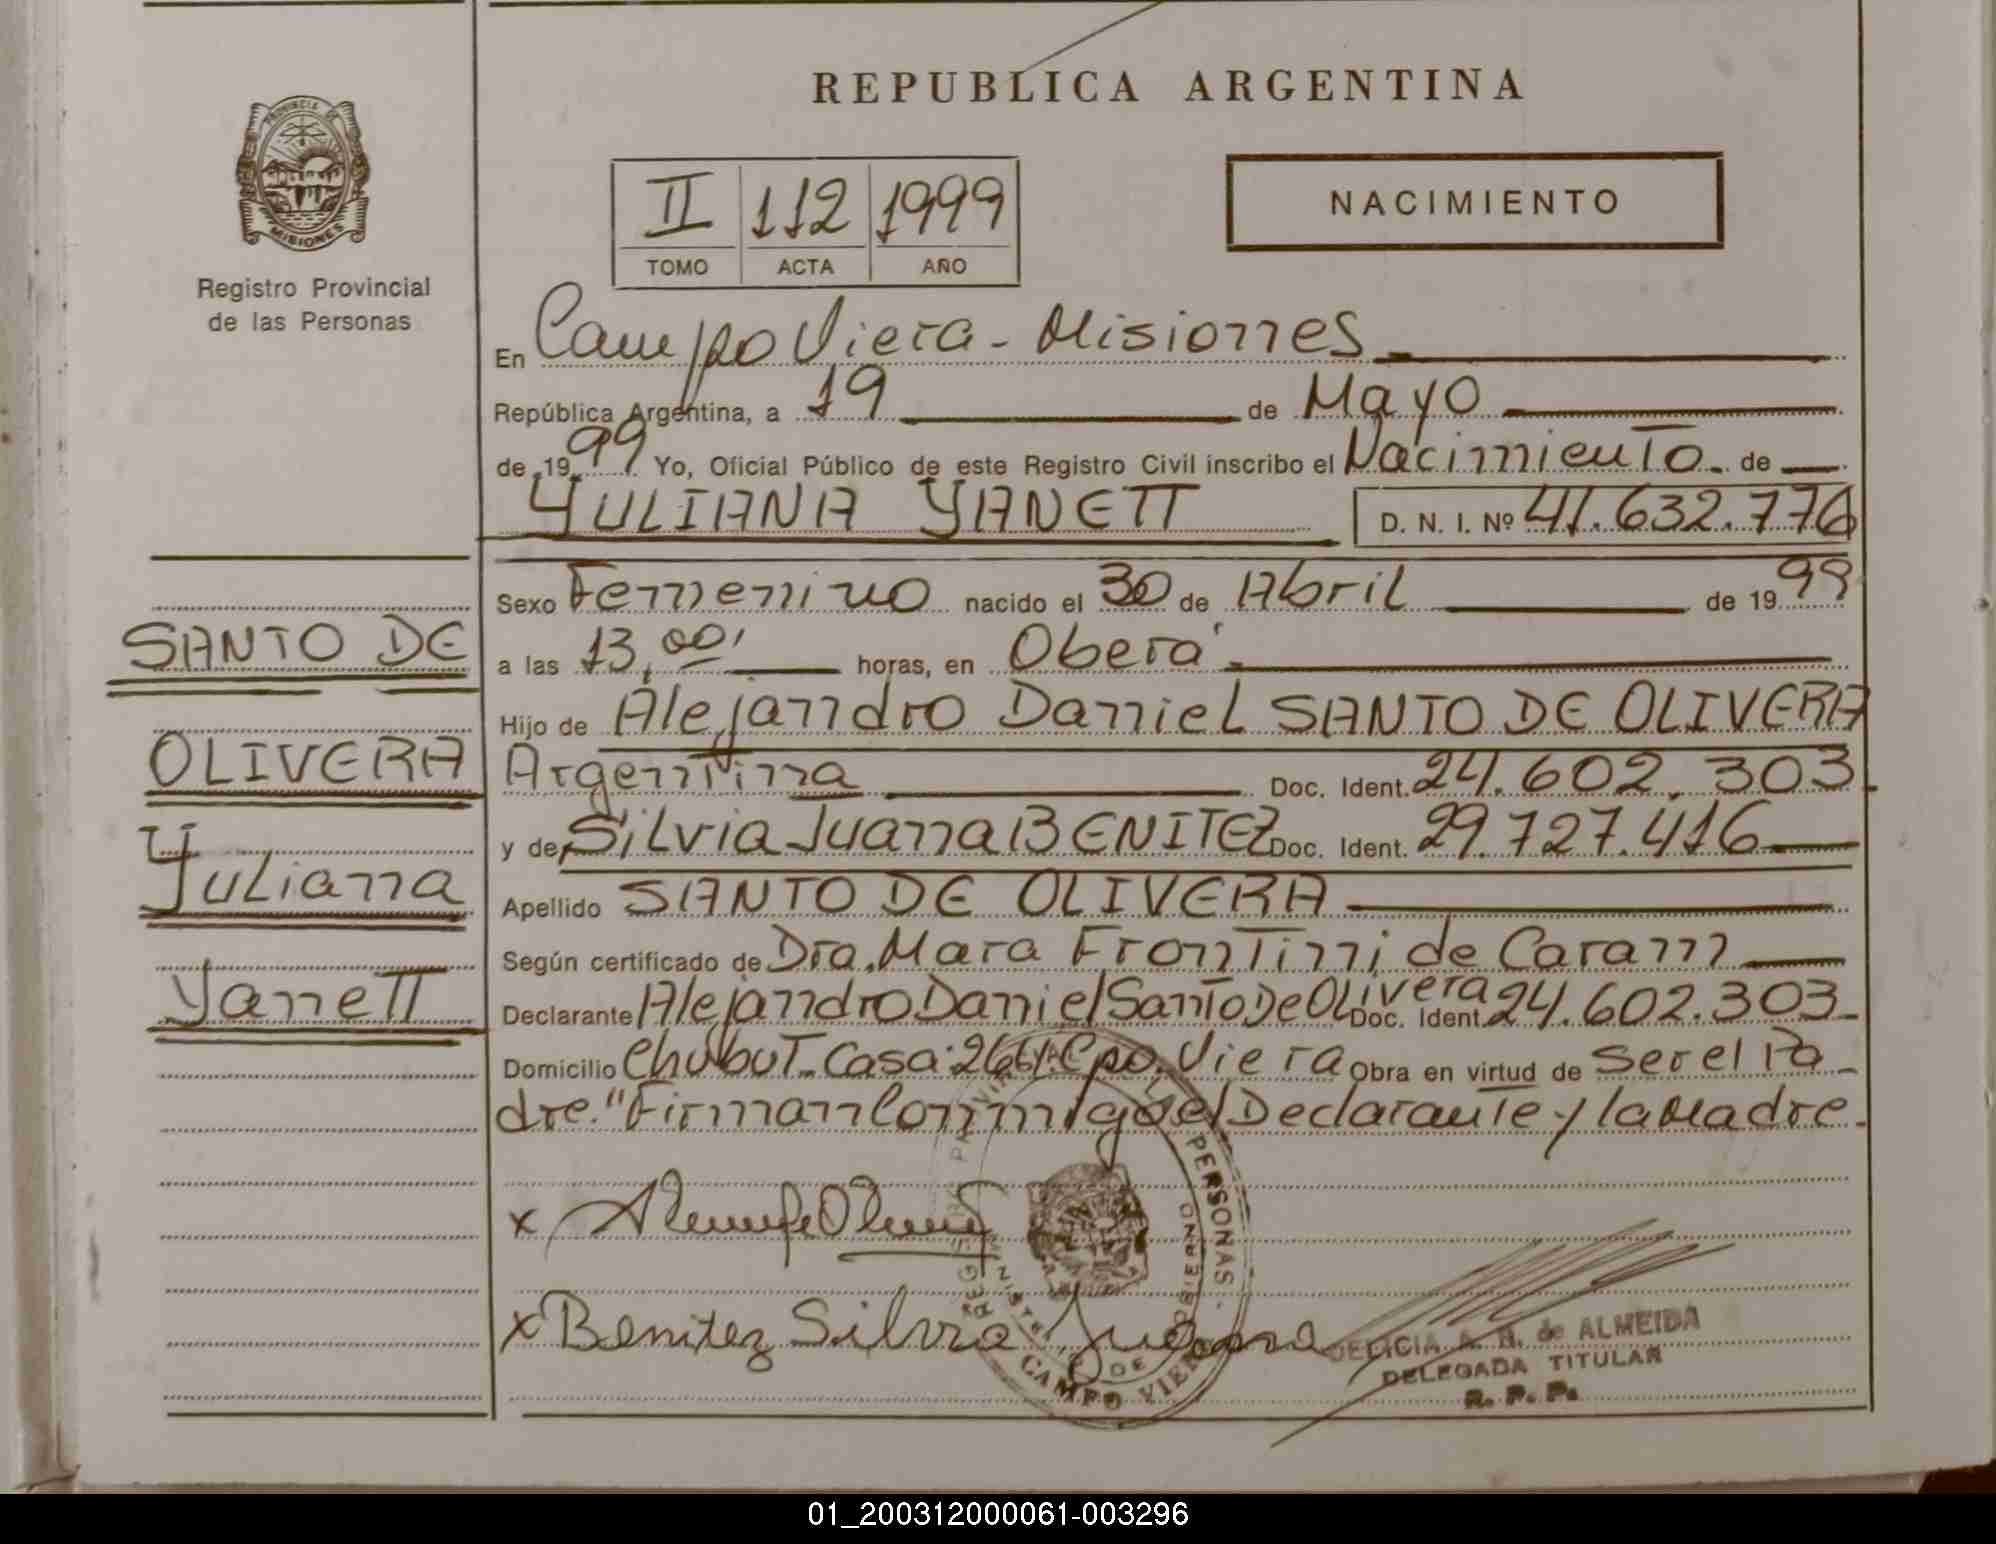 REPUBLICA ARGENTINA
PROVINCIA DE
MISIONES
Registro Provincial
de las Personas
II 112 1999
TOMO ACTA AÑO
NACIMIENTO
En Campo Viera - Misiones
República Argentina, a 19 de Mayo
de 1999 Yo, Oficial Público de este Registro Civil inscribo el Nacimiento de
YULIANA YANETT D. N. I. Nº 41.632.776
Sexo Femenino nacido el 30 de Abril de 1999
a las 13,00' horas, en Oberá
Hijo de Alejandro Daniel SANTO DE OLIVERA
Argentina Doc. Ident. 24.602.303
y de Silvia Juana BENITEZ Doc. Ident. 29.727.416
Apellido SANTO DE OLIVERA
Según certificado de Dra. Mara Frontini de Caram
Declarante Alejandro Daniel Santo De Olivera Doc. Ident. 24.602.303
Domicilio Chubut - Casa: 264. Cpo. Viera Obra en virtud de Ser el Pa-
dre. "Firman Conmigo el Declarante y la Madre.
SANTO DE
OLIVERA
Yuliana
Yanett
x
x Benitez Silvia Juana
PERSONAS
CAMPO VIERA
DELICIA A. R. de ALMEIDA
DELEGADA TITULAR
R. P. P.
01_200312000061-003296